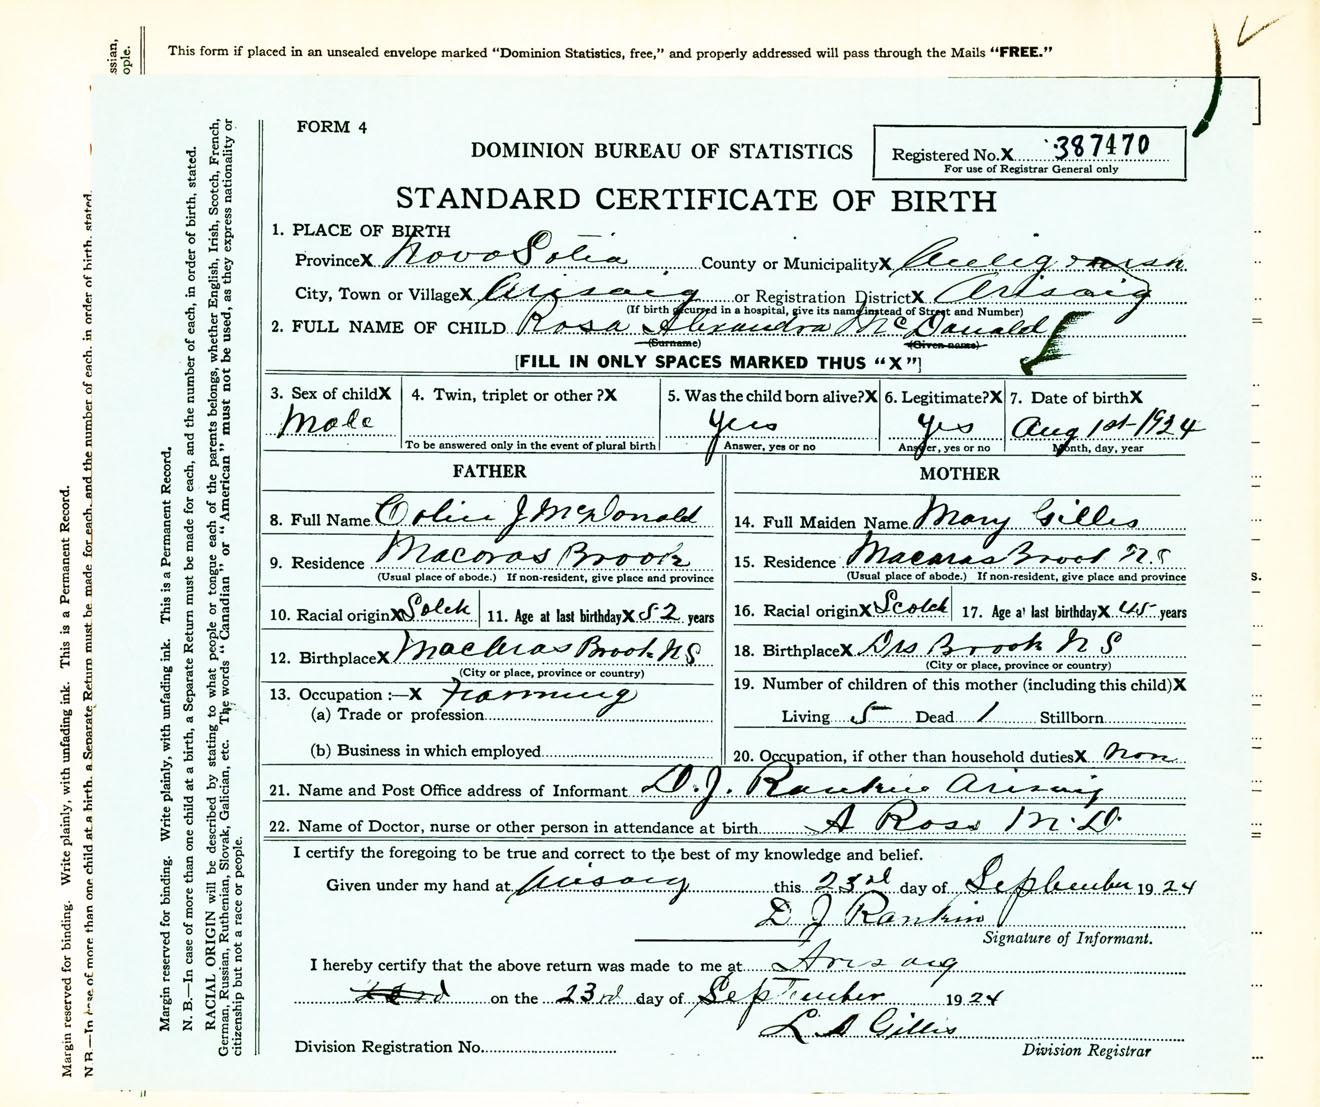 This form if placed in an unsealed envelope marked “Dominion Statistics, free,” and properly addressed will pass through the Mails “FREE.”
FORM 4
DOMINION BUREAU OF STATISTICS
Registered No.X 387470
For use of Registrar General only
STANDARD CERTIFICATE OF BIRTH
1. PLACE OF BIRTH
ProvinceX Nova Sotia County or MunicipalityX
City, Town or VillageX Arisaig or Registration DistrictX Arisaig
(If birth occurred in a hospital, give its name instead of Street and Number)
2. FULL NAME OF CHILD Rosa Alexandra McDonald
(Surname) (Given name)
[FILL IN ONLY SPACES MARKED THUS “X”]
3. Sex of childX 4. Twin, triplet or other ?X 5. Was the child born alive?X 6. Legitimate?X 7. Date of birthX
Male Yes Yes Aug 1st 1924
To be answered only in the event of plural birth Answer, yes or no Answer, yes or no Month, day, year
FATHER MOTHER
8. Full Name Colin J McDonald 14. Full Maiden Name Mary Gillis
9. Residence Brook 15. Residence Brook N.S
(Usual place of abode.) If non-resident, give place and province (Usual place of abode.) If non-resident, give place and province
10. Racial originX Sotch 11. Age at last birthdayX 52 years 16. Racial originX Scotch 17. Age at last birthdayX 45 years
12. BirthplaceX Brook N S 18. BirthplaceX Drs Brook N S
(City or place, province or country) (City or place, province or country)
13. Occupation :—X Farming 19. Number of children of this mother (including this child)X
(a) Trade or profession Living 5 Dead 1 Stillborn
(b) Business in which employed 20. Occupation, if other than household dutiesX non
21. Name and Post Office address of Informant D. J. Rankin Arisaig
22. Name of Doctor, nurse or other person in attendance at birth A Ross M.D.
I certify the foregoing to be true and correct to the best of my knowledge and belief.
Given under my hand at Arisaig this 23rd day of September 1924
D J Rankin
Signature of Informant.
I hereby certify that the above return was made to me at Arisaig
23rd on the 23rd day of September 1924
L A Gillis
Division Registration No. Division Registrar
Margin reserved for binding. Write plainly, with unfading ink. This is a Permanent Record.
N. B.—In case of more than one child at a birth, a Separate Return must be made for each, and the number of each, in order of birth, stated.
RACIAL ORIGIN will be described by stating to what people or tongue each of the parents belongs, whether English, Irish, Scotch, French,
German, Russian, Ruthenian, Slovak, Galician, etc. The words “Canadian” or “American” must not be used, as they express nationality or
citizenship but not a race or people.
Margin reserved for binding. Write plainly, with unfading ink. This is a Permanent Record.
N B.—In case of more than one child at a birth, a Separate Return must be made for each, and the number of each, in order of birth, stated
ssian,
ople.
s.